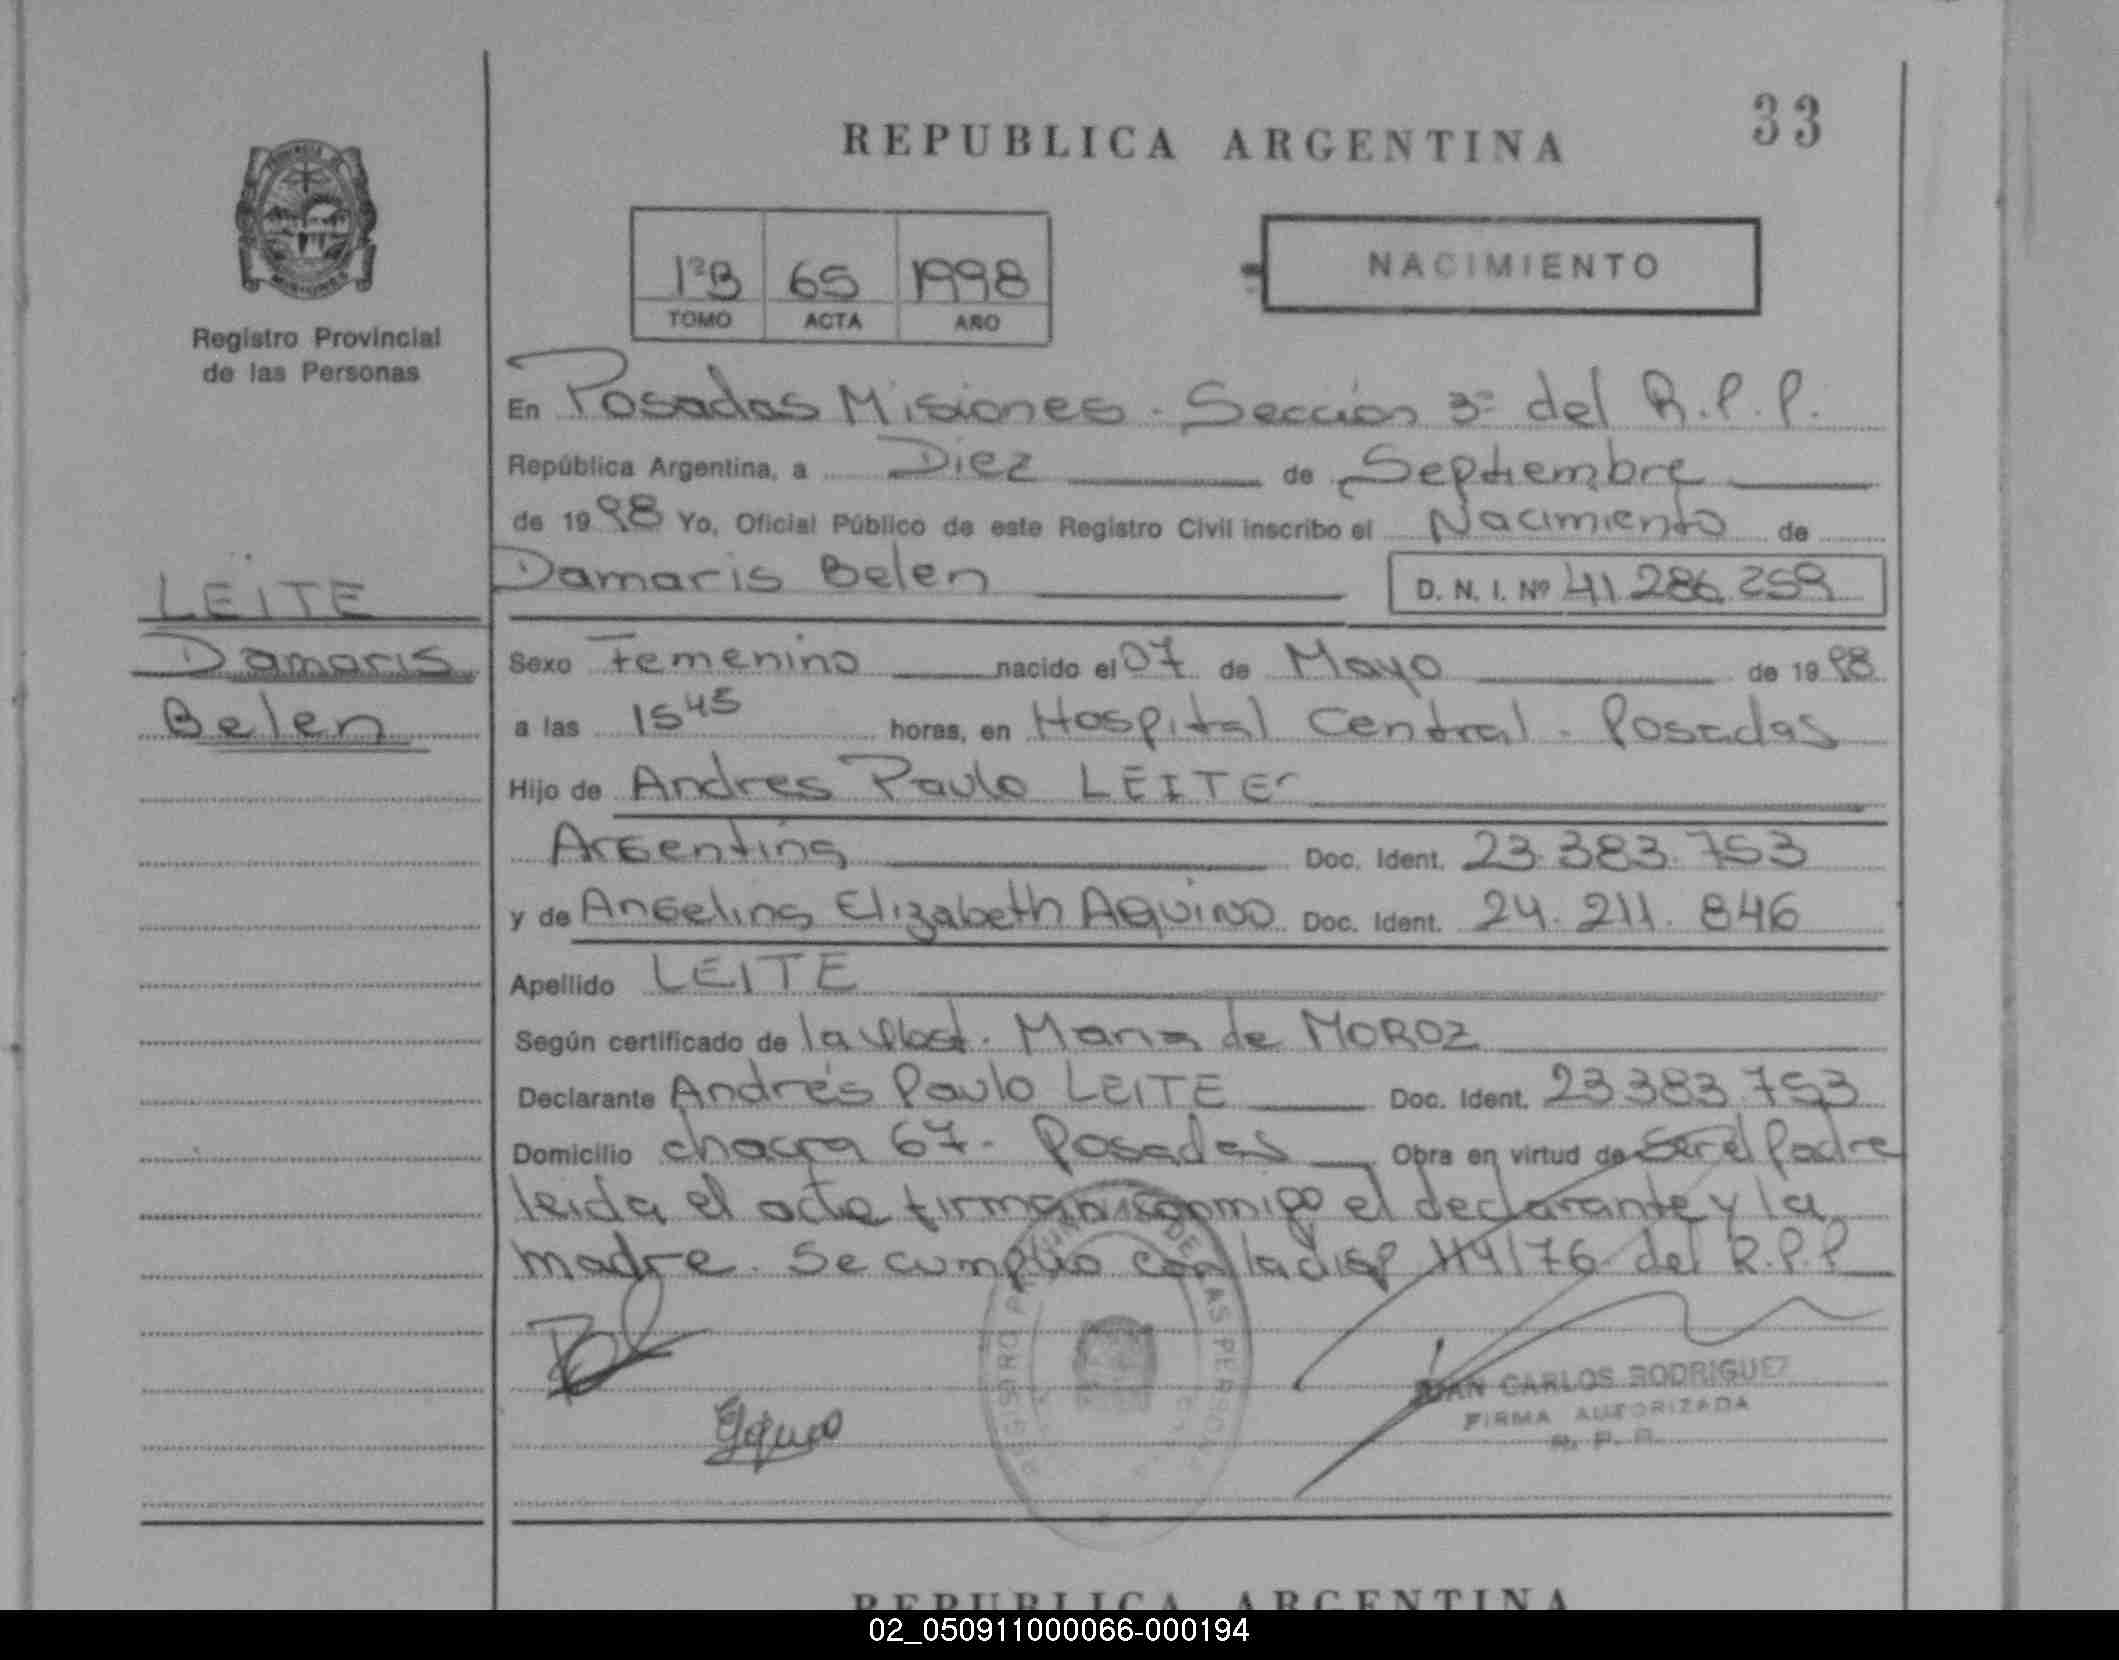 33
REPUBLICA ARGENTINA
NACIMIENTO
1ºB 65 1998
TOMO ACTA AÑO
Registro Provincial
de las Personas
LEITE
Damaris
Belen
En Posadas Misiones - Sección 3ª del R.P.P.
República Argentina, a Diez de Septiembre
de 1998 Yo, Oficial Público de este Registro Civil inscribo el Nacimiento de
Damaris Belen D. N. I. Nº 41.286.259
Sexo Femenino nacido el 07 de Mayo de 1998
a las 15 45 horas, en Hospital Central - Posadas
Hijo de Andres Paulo LEITE
Argentina Doc. Ident. 23.383.753
y de Angelina Elizabeth AQUINO Doc. Ident. 24.211.846
Apellido LEITE
Según certificado de la Obst. Maria de MOROZ
Declarante Andrés Paulo LEITE Doc. Ident. 23383753
Domicilio chacra 67 - Posadas Obra en virtud de Ser el Padre
leida el acta firman conmigo el declarante y la
madre. Se cumplio con la disp 114/76 del R.P.P
JUAN CARLOS RODRIGUEZ
FIRMA AUTORIZADA
R. P. P.
REPUBLICA ARGENTINA
02_050911000066-000194